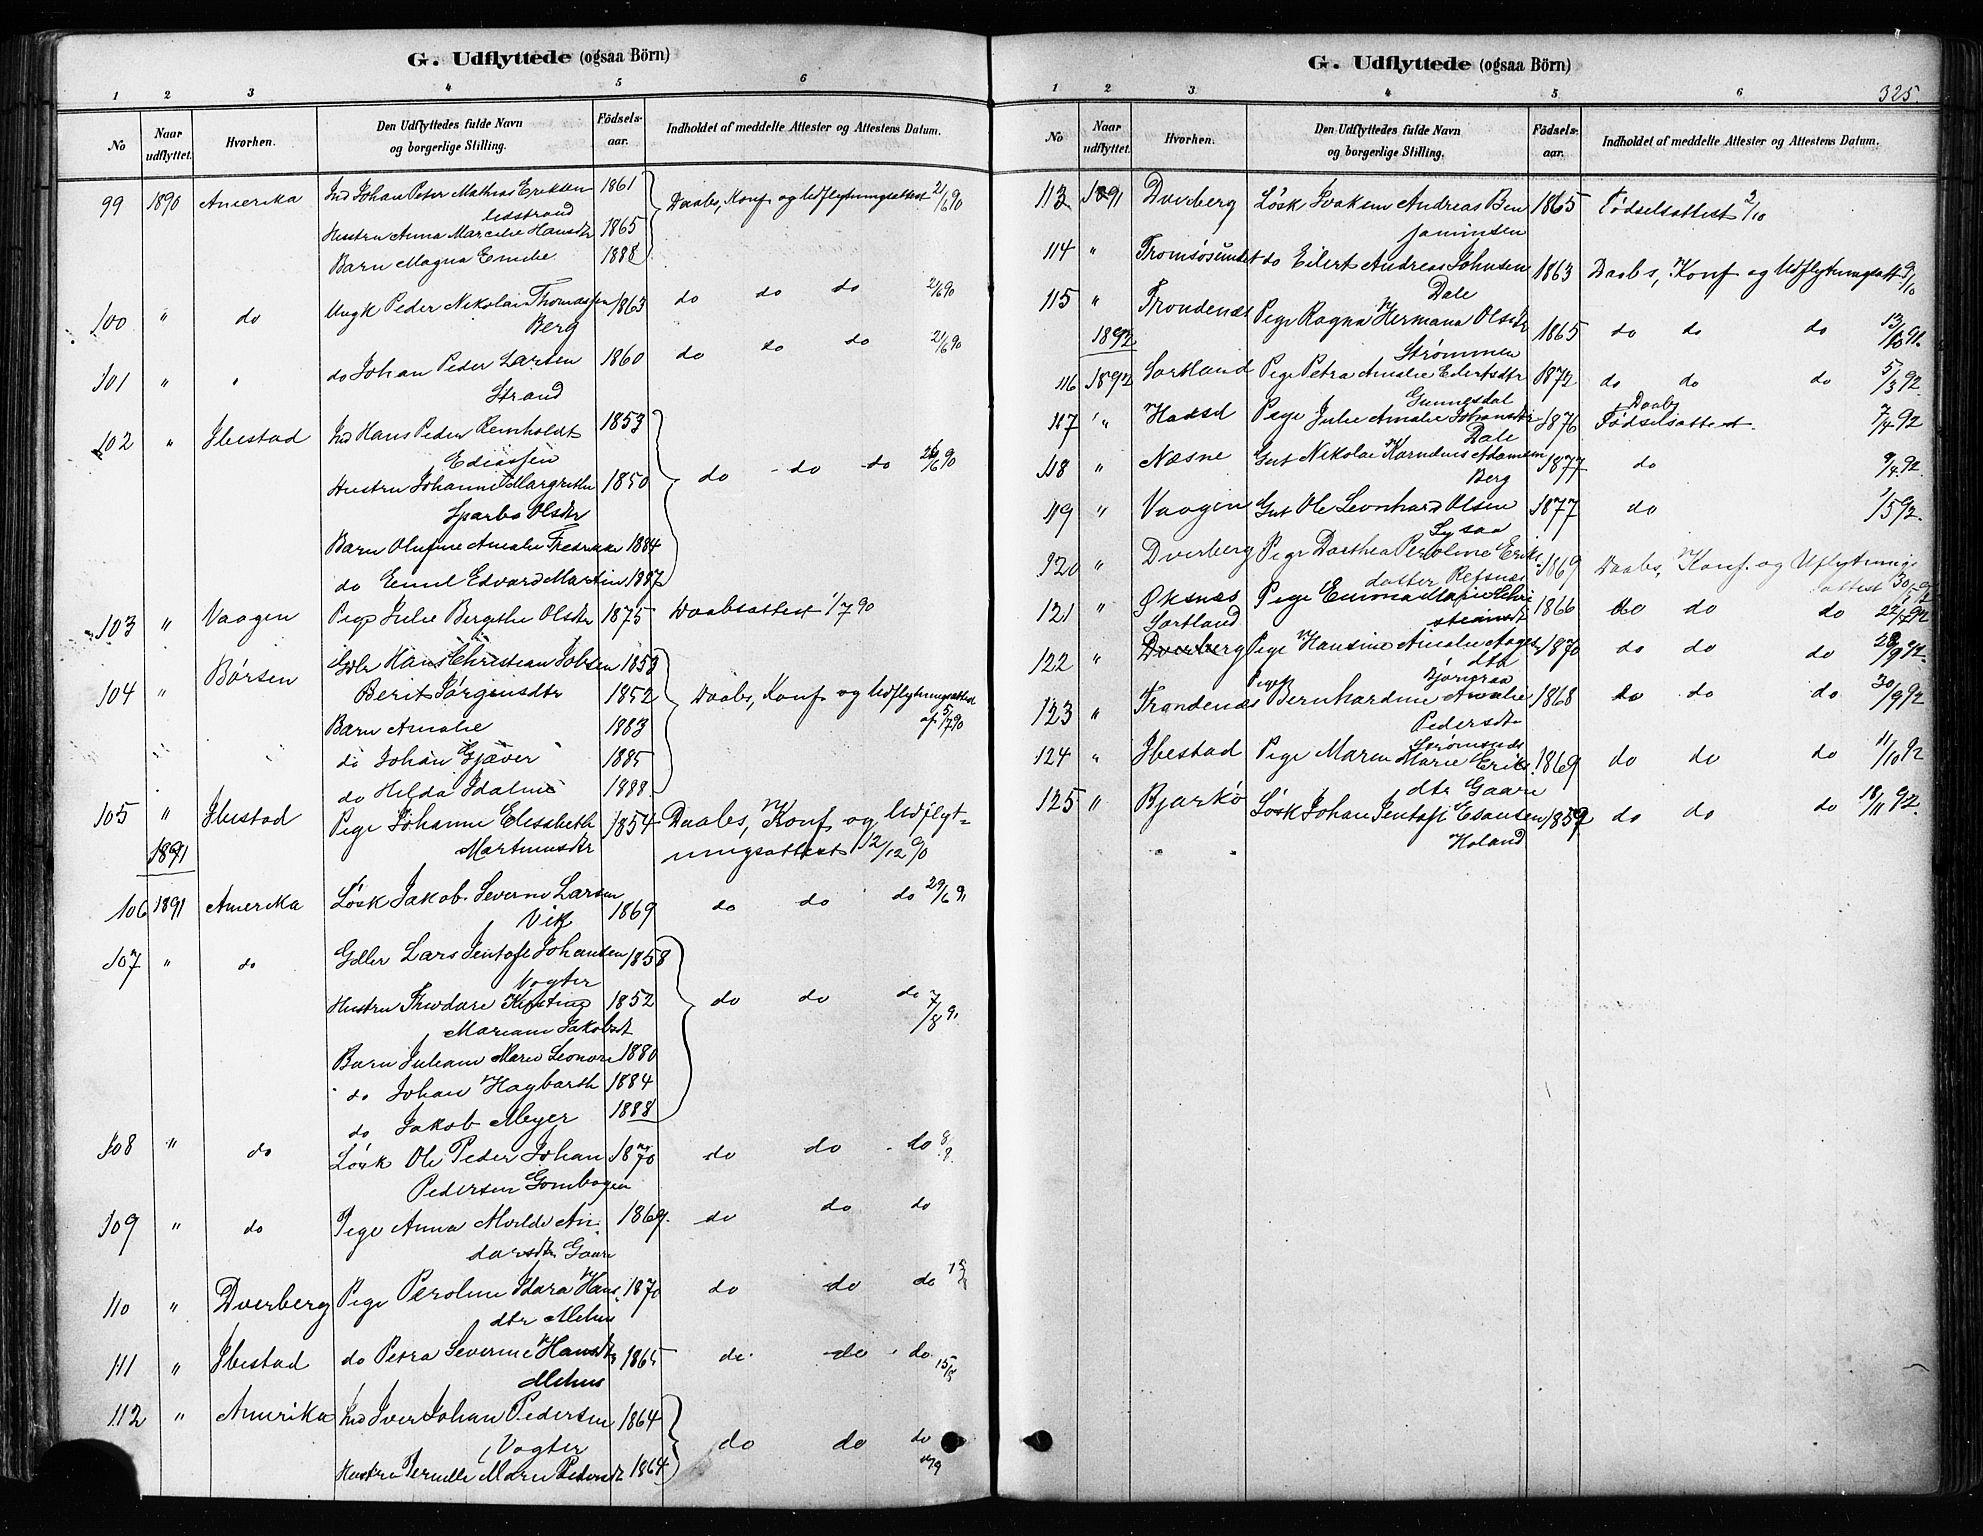 G. Udflyttede (ogsaa Börn)
1 2 3 4 5 6
No Naar udflyttet. Hvorhen. Den Udflyttedes fulde Navn og borgerlige Stilling. Födsels-aar. Indholdet af meddelte Attester og Attestens Datum.
99 1890 Amerika Ind Johan Peter Mathias Eriksen 1861 Daabs, Konf og Udflytningsattest 21/6 90
Hustru Anna Marcelie Hansdtr 1865
Barn Magna Emilie 1888
100 " do Ungk Peder Nikolai Thomassen 1863 do do do 21/6 90
Berg
101 " " do Johan Peder Larsen 1860 do do do 21/6 90
Strand
102 " Ibestad Ind Hans Peder Reinholdt 1853
Ediassen do do do 90
Hustru Johanne Margrethe 1850
Sparbo Olsdtr
Barn Olufine Amalie Fredrikke 1884
do Emil Edvard Martin 1887
103 " Vaagen Pige Julie Bergithe Olsdtr 1875 Daabsattest 1/7 90
104 " Börsen Hans Christian Jobsen 1853
Berit Jörgensdtr 1852 Daabs, Konf og Udflytningsattest
Barn Amalie 1883 af 5/7 90
do Johan Gjæver 1885
do Hilda Idaline 1888
105 " Ibestad Pige Johanne Elisabeth 1854 Daabs, Konf og Udflyt=
1891 Martinusdtr ningsattest 12/12 90
106 1891 Amerika Løsk Jakob Severin Larsen 1869 do do do 29/6 91
Vik
107 " do Gdlr Lars Jentoft Johansen 1858
Vogter
Hustru Theodare Kirstine 1852 do do do 7/8 91
Mariane Jakobsdt
Barn Juliane Marie Leonore 1880
do Johan Hagbarth 1884
do Jakob Meyer 1888
108 " do Løsk Ole Peder Johan 1870 do do do
Pedersen Gombogen
109 " do Pige Anna Molde An 1869 do do do
dorsdtr Gaare
110 " Dverberg Pige Peroline Idara Hans 1870 do do do
dtr Melhus
111 " Ibestad do Petra Severine Hansdtr 1865 do do do 15/8
Mehus
112 " Amerika Ind Iver Johan Pedersen 1864
Vogter do do do
Hustru Pernille Marie Pedersdt 1864
G. Udflyttede (ogsaa Börn)
1 2 3 4 5 6 325.
No Naar udflyttet. Hvorhen. Den Udflyttedes fulde Navn og borgerlige Stilling. Födsels-aar. Indholdet af meddelte Attester og Attestens Datum.
113 1891 Dverberg Løsk Joakim Andreas Ben 1865 Födselsattest 2/10
jaminsen
114 " Tromsøsundet do Eilert Andreas Johnsen 1863 Daabs, Konf og Udflytningsatt 9/10
Dale
115 " Trondenæs Pige Ragna Hermana Olsdtr 1865 do do do 13/10 91.
1892 Strømmen
116 1892 Sortland Pige Petra Amalie Eilertsdtr 1872 do do do 5/3 92.
Gunnesdal Daabs
117 " Hadsel Pige Julie Amalie Johansdtr 1876 Födselsattest. 7/4 92
Dale
118 " Næsne Gut Nikolai Adamsen 1877 do 9/4 92.
Berg
119 " Vaagen Gut Ole Leonhard Olsen 1877 do 1/5 92.
Lysaa
120 " Dverberg Pige Dorthea Peroline Eriks 1869 Daabs, Konf. og Uflytnings
datter Refsnæs attest 30/
121 " Øksnæs Pige Emma Marie Chri 1866 do do do 22/7 92
Sortland stiansdt
122 " Dverberg Pige Hansine Amalie Aages 1870 do do do 28/9 92.
dtr
Bjørnraa
123 " Trondenæs Pige Bernhardine Amalie 1868 do do do 30/9 92
Pedersdtr
Strømsnæs
124 " Ibestad Pige Maren Marie Eriks 1869 do do do 11/10 92
dtr Gaare
125 " Bjarkö Løsk Johan Jentoft Esaiasen 1859 do do do 18/11 92.
Holand